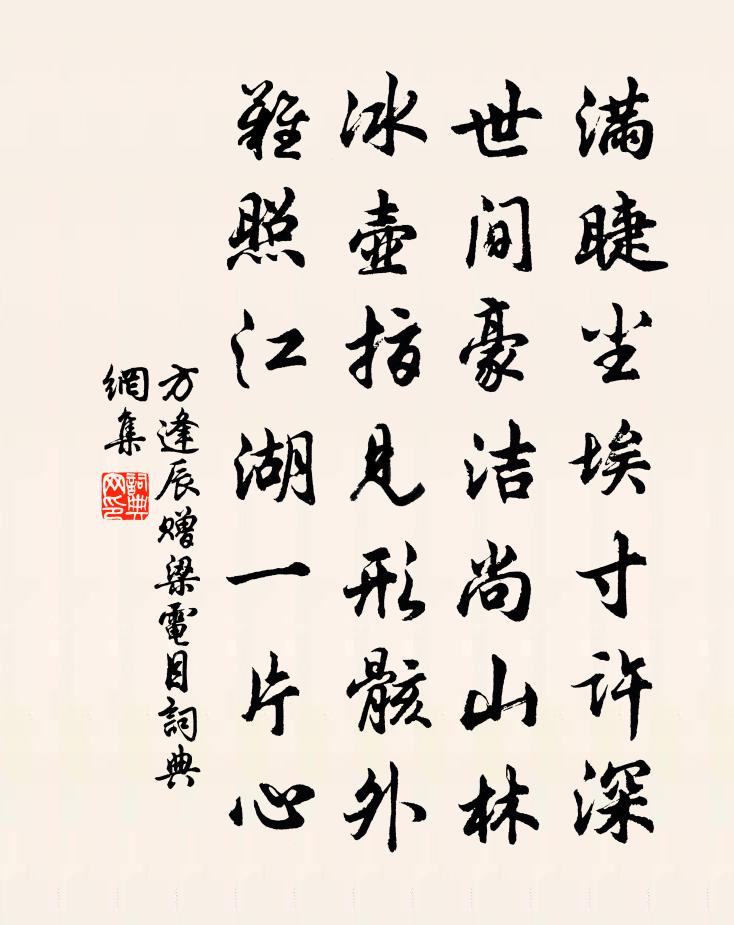 滿睫尘埃寸许深
世间豪洁尚山林
冰壺指見形骸外
難照江湖一片心
方逢辰赠梁電目詞典
網集
詞典网印